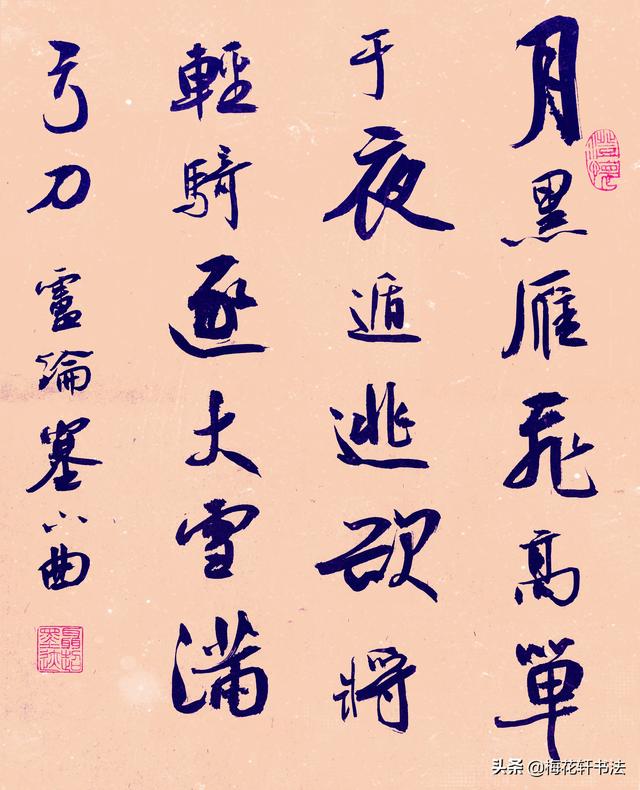 月黑雁飛高單
于夜遁逃欲將
輕騎逐大雪滿
弓刀 盧綸塞下曲
头条 @梅花轩书法